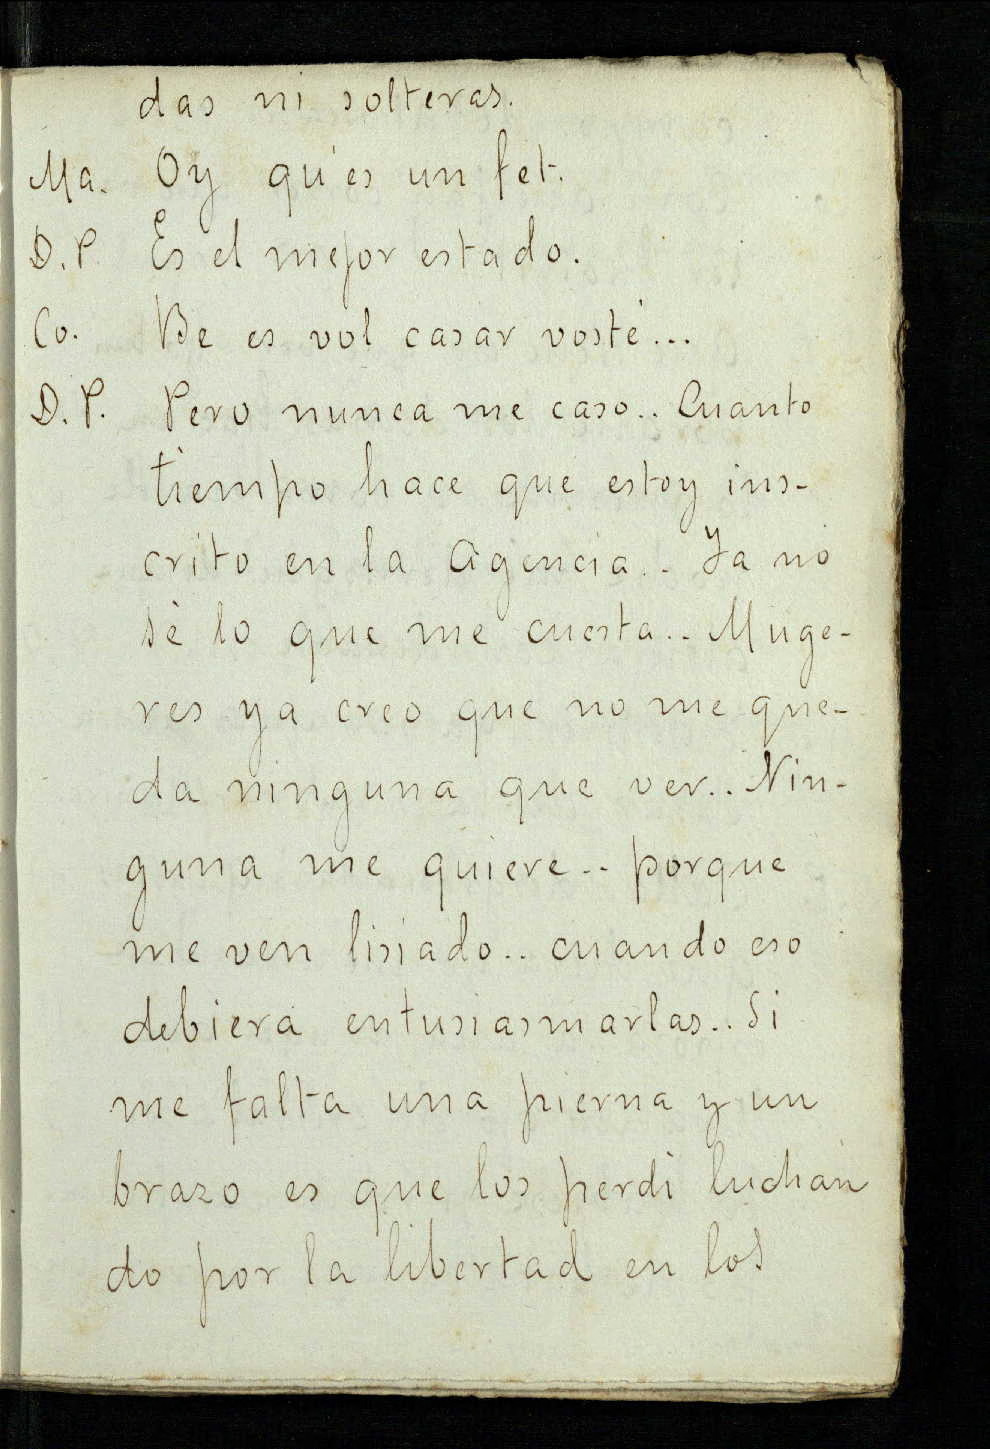 das ni solteras.
Ma. Oy qu'es un fet.
D. P. Es el mejor estado.
Co. Be es vol casar vosté...
D. P. Pero nunca me caso.. Cuanto
tiempo hace que estoy ins-
crito en la Agencia.. Ya no
sè lo que me cuesta.. Muge-
res ya creo que no me que-
da ninguna que ver.. Nin-
guna me quiere.. porque
me ven lisiado.. cuando eso
debiera entusiasmarlas.. Si
me falta una pierna y un
brazo es que los perdi luchan
do por la libertad en los